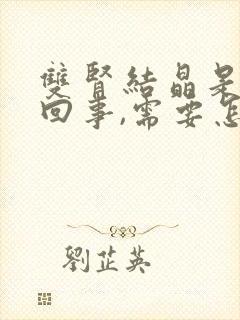 雙腎結晶是
回事,需要怎
劉芷英